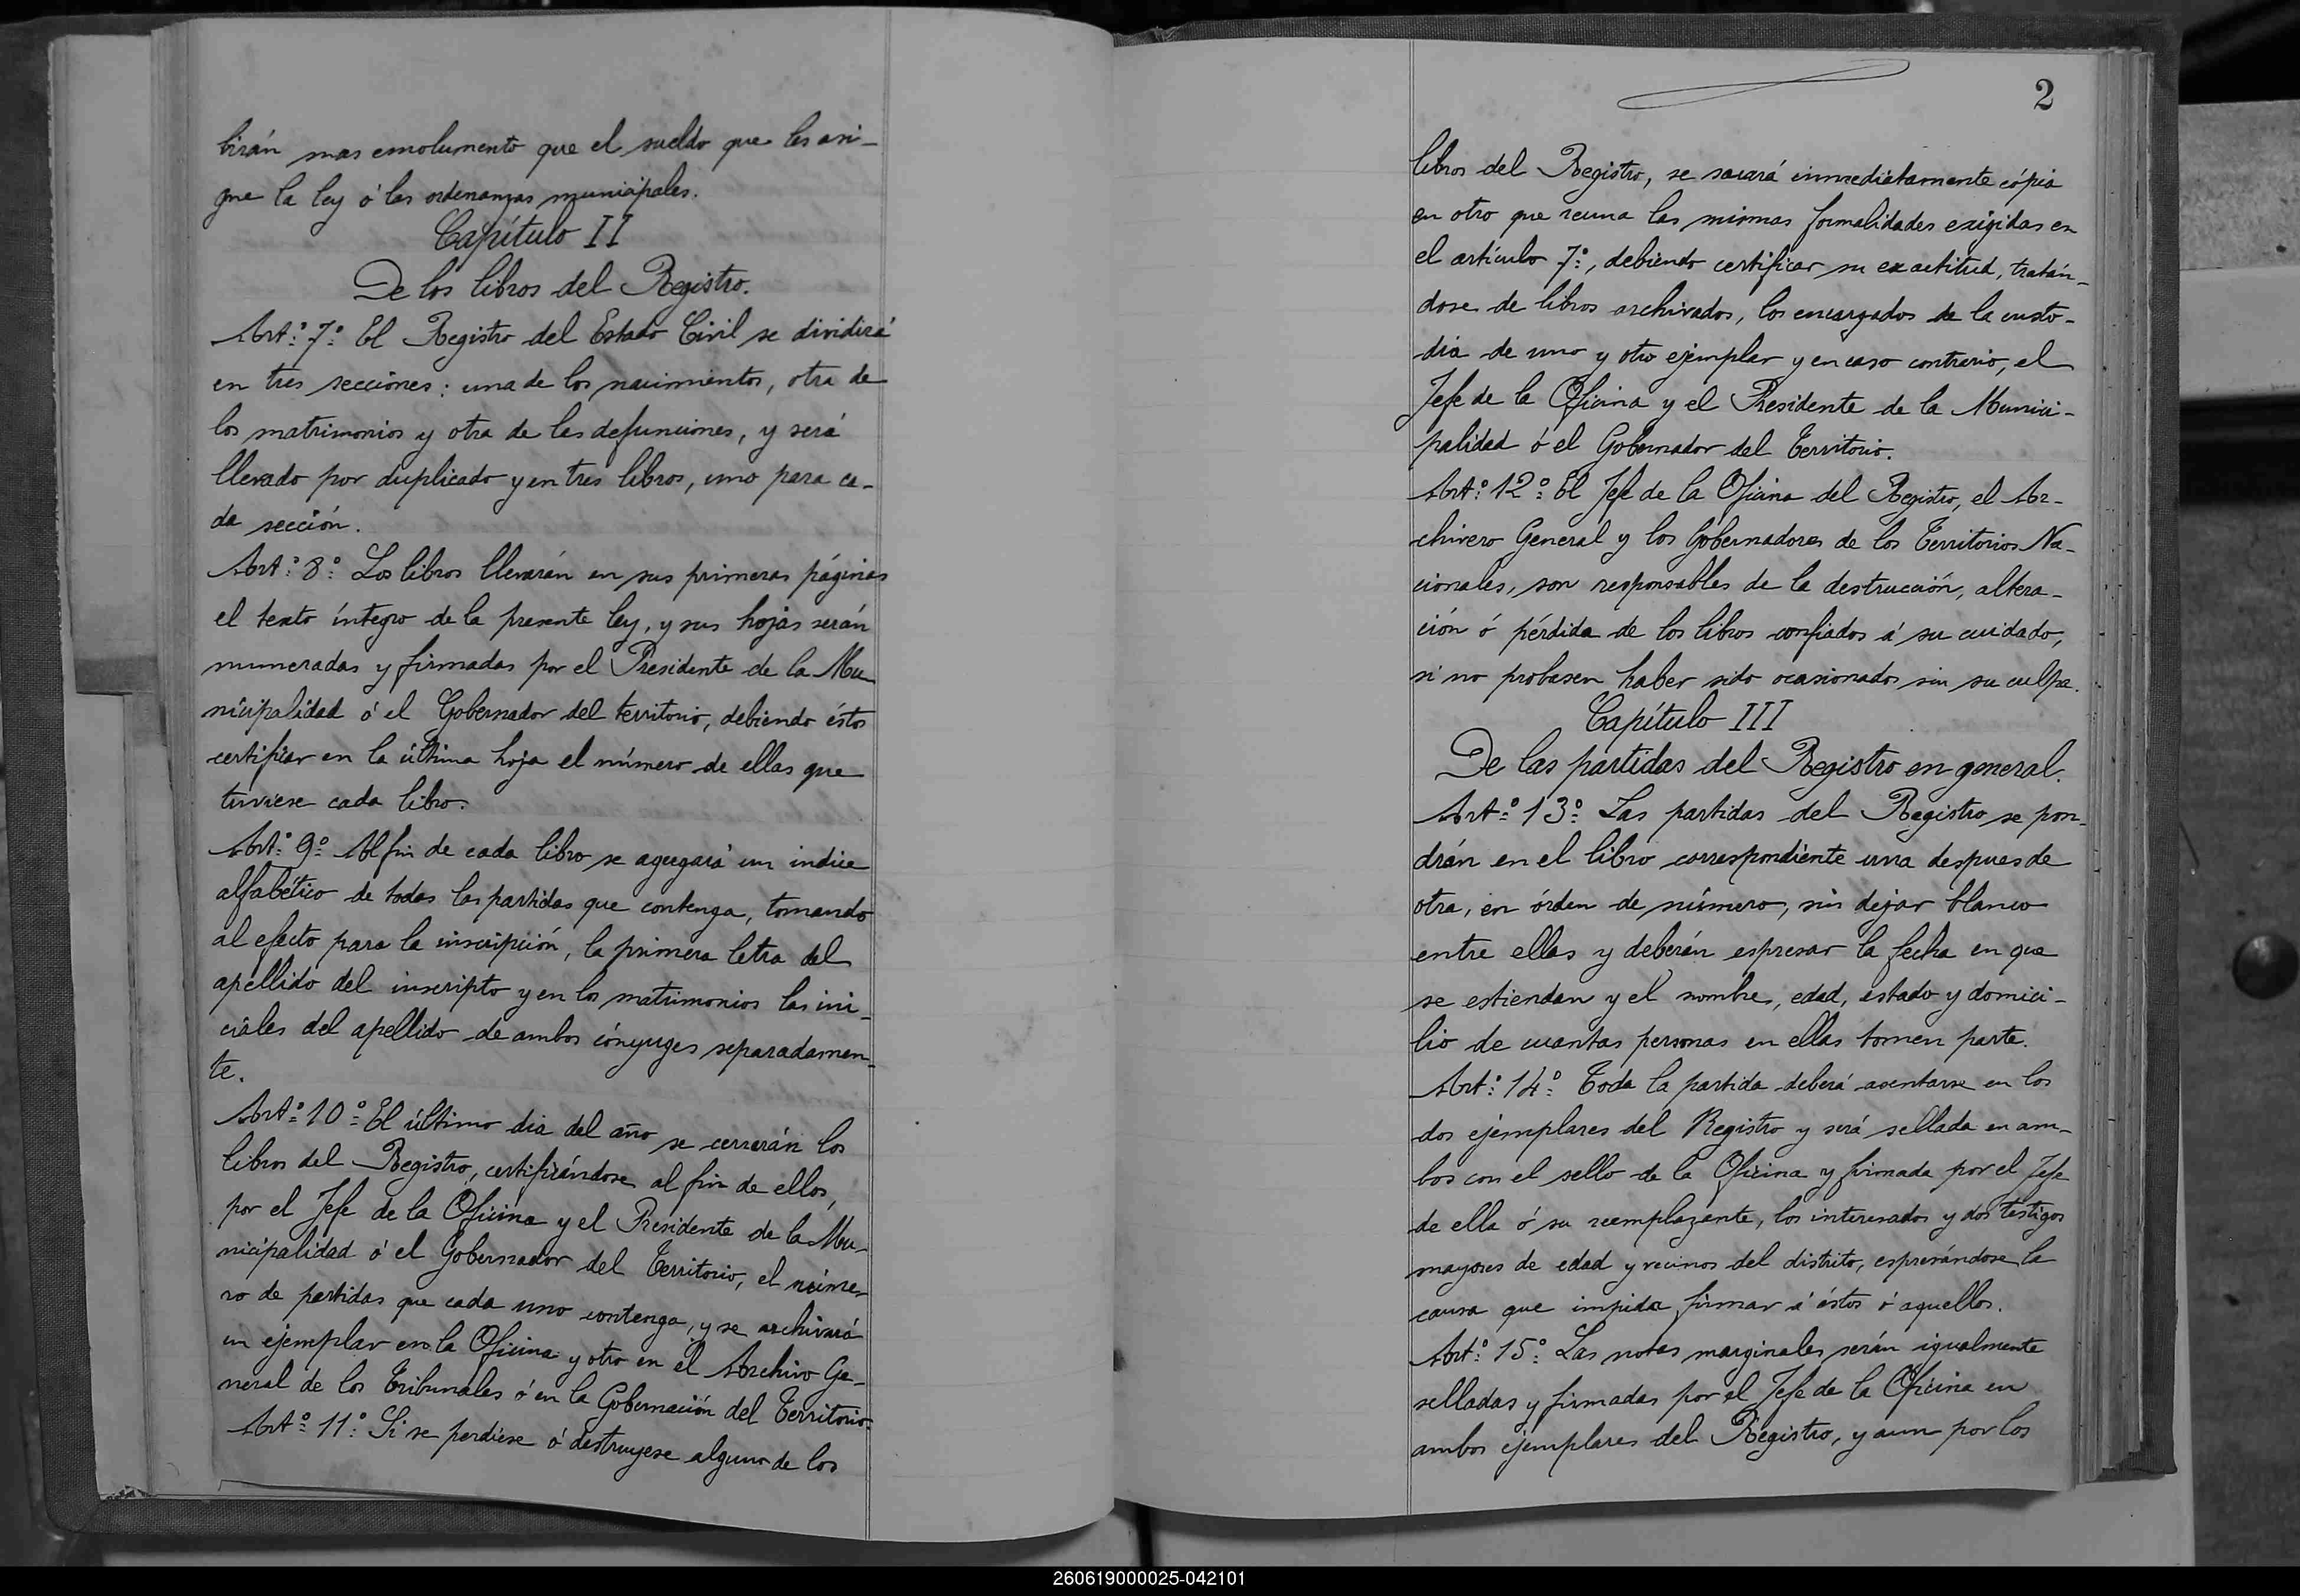 birán mas emolumento que el sueldo que les asi-
gne la ley ó las ordenanzas municipales.
Capítulo II
De los libros del Registro.
Art.º 7º El Registro del Estado Civil se dividirá
en tres secciones: una de los nacimientos, otra de
los matrimonios y otra de las defunciones, y será
llevado por duplicado y en tres libros, uno para ca-
da sección.
Art.º 8º Los libros llevarán en sus primeras páginas
el texto íntegro de la presente ley, y sus hojas serán
numeradas y firmadas por el Presidente de la Mu
nicipalidad ó el Gobernador del territorio, debiendo éstos
certificar en la última hoja el número de ellas que
tuviese cada libro.
Art.º 9º Al fin de cada libro se agregará un indice
alfabético de todas las partidas que contenga, tomando
al efecto para la inscripción, la primera letra del
apellido del inscripto y en los matrimonios las ini-
ciales del apellido de ambos cónyuges separadamen-
te.
Art.º 10º El último dia del año se cerrarán los
libros del Registro, certificándose al fin de ellos,
por el Jefe de la Oficina y el Presidente de la Mu-
nicipalidad ó el Gobernador del Territorio, el núme-
ro de partidas que cada uno contenga, y se archivará
un ejemplar en la Oficina y otro en el Archivo Ge-
neral de los Tribunales ó en la Gobernación del Territorio.
Art.º 11º Si se perdiese ó destruyese alguno de los
2
libros del Registro, se sacará inmediatamente cópia
en otro que reuna las mismas formalidades exigidas en
el artículo 7º, debiendo certificar su exactitud, tratán-
dose de libros archivados, los encargados de la custo-
dia de uno y otro ejemplar y en caso contrario, el
Jefe de la Oficina y el Presidente de la Munici-
palidad ó el Gobernador del Territorio.
Art.º 12º El Jefe de la Oficina del Registro, el Ar-
chivero General y los Gobernadores de los Territorios Na-
cionales, son responsables de la destrucción, altera-
ción ó pérdida de los libros confiados á su cuidado,
si no probasen haber sido ocasionados sin su culpa.
Capítulo III
De las partidas del Registro en general.
Art.º 13º Las partidas del Registro se pon-
drán en el libro correspondiente una despues de
otra, en órden de número, sin dejar blanco
entre ellas y deberán espresar la fecha en que
se estiendan y el nombre, edad, estado y domici-
lio de cuantas personas en ellas tomen parte.
Art.º 14º Toda la partida deberá asentarse en los
dos ejemplares del Registro y será sellada en am-
bos con el sello de la Oficina y firmada por el Jefe
de ella ó su reemplazante, los interesados y dos testigos
mayores de edad y vecinos del distrito, espresándose la
causa que impida firmar á éstos ó aquellos.
Art.º 15º Las notas marginales serán igualmente
selladas y firmadas por el Jefe de la Oficina en
ambos ejemplares del Registro, y aun por los
260619000025-042101